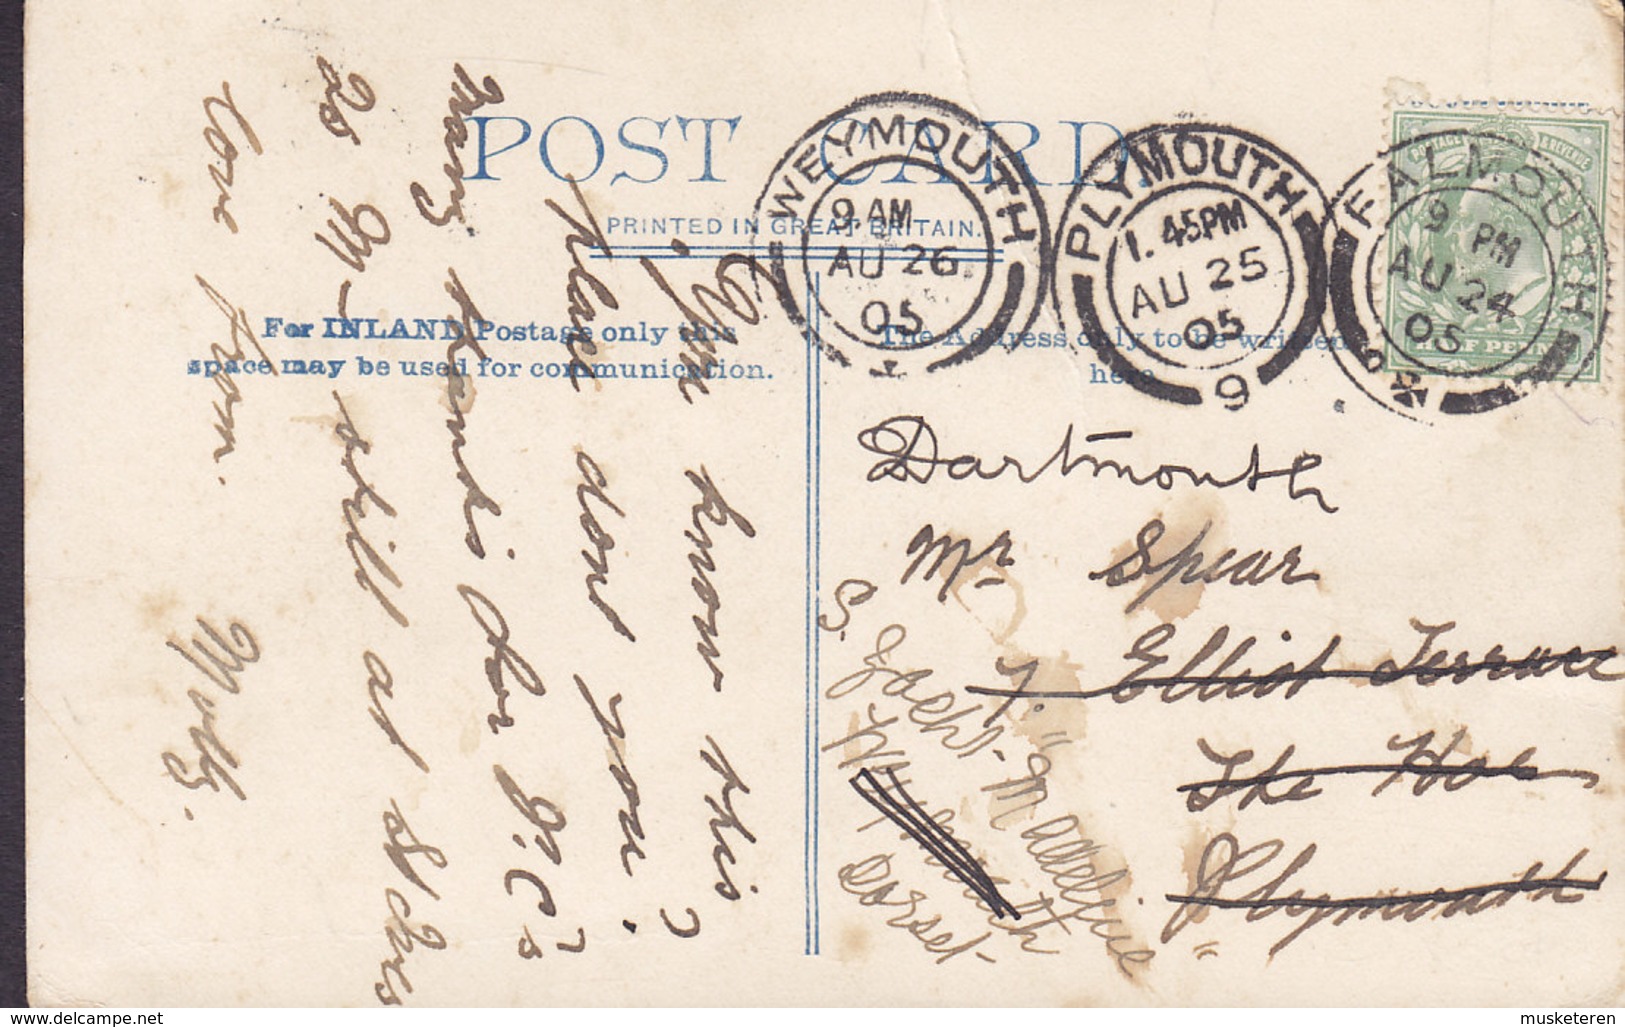 POST CARD.
PRINTED IN GREAT BRITAIN.
For INLAND Postage only this
space may be used for communication.
The Address only to be written
here
WEYMOUTH
9 AM
AU 26
05
PLYMOUTH
1. 45PM
AU 25
05
9
FALMOUTH
9 PM
AU 24
05
POSTAGE & REVENUE
HALF PENNY
Dartmouth
Mr Spear
7. Elliot Terrace
The Hoe
Plymouth
S. Yacht "Madeline"
Weymouth
Dorset
You know this
place dont you?
Many thanks for P.C's
is M- still at St Ches
love from
Molly.
www.delcampe.net
musketeren